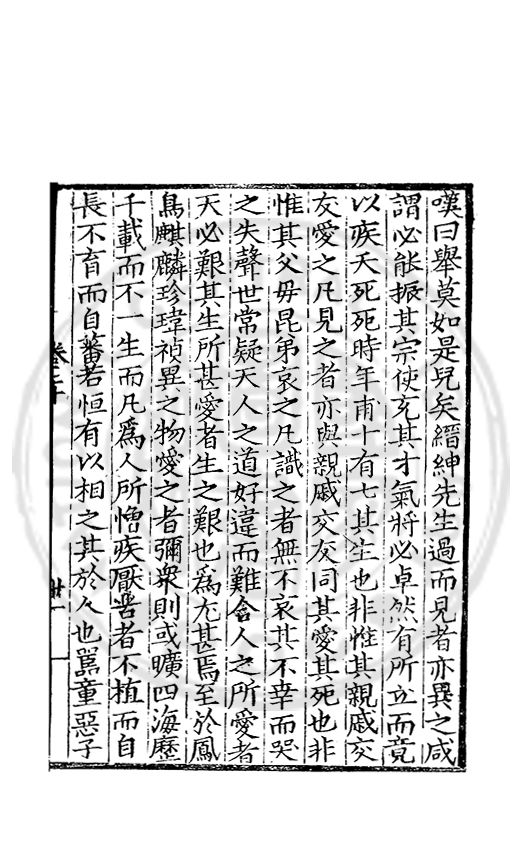 嘆曰舉莫如是兒矣縉紳先生過而見者亦異之咸
謂必能振其宗使充其才氣將必卓然有所立而竟
以疾夭死死時年甫十有七其生也非惟其親戚交
友愛之凡見之者亦與親戚交友同其愛其死也非
惟其父毋昆弟哀之凡識之者無不哀其不幸而哭
之失聲世常疑天人之道好違而難會人之所愛者
天必艱其生所甚愛者生之艱也爲尤甚焉至於鳳
鳥麒麟珍瑋禎異之物愛之者彌衆則或曠四海歷
千載而不一生而凡爲人所憎疾厭苦者不植而自
長不育而自蕃若恒有以相之其於人也嚚童惡子